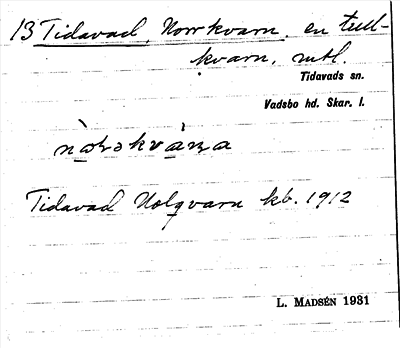 13 Tidavad, Norrkvarn, en tull-
kvarn, utl.
Tidavads sn.
Vadsbo hd. Skar. l.
Tidavad Nolqvarn kb. 1912
L. MADSÉN 1931